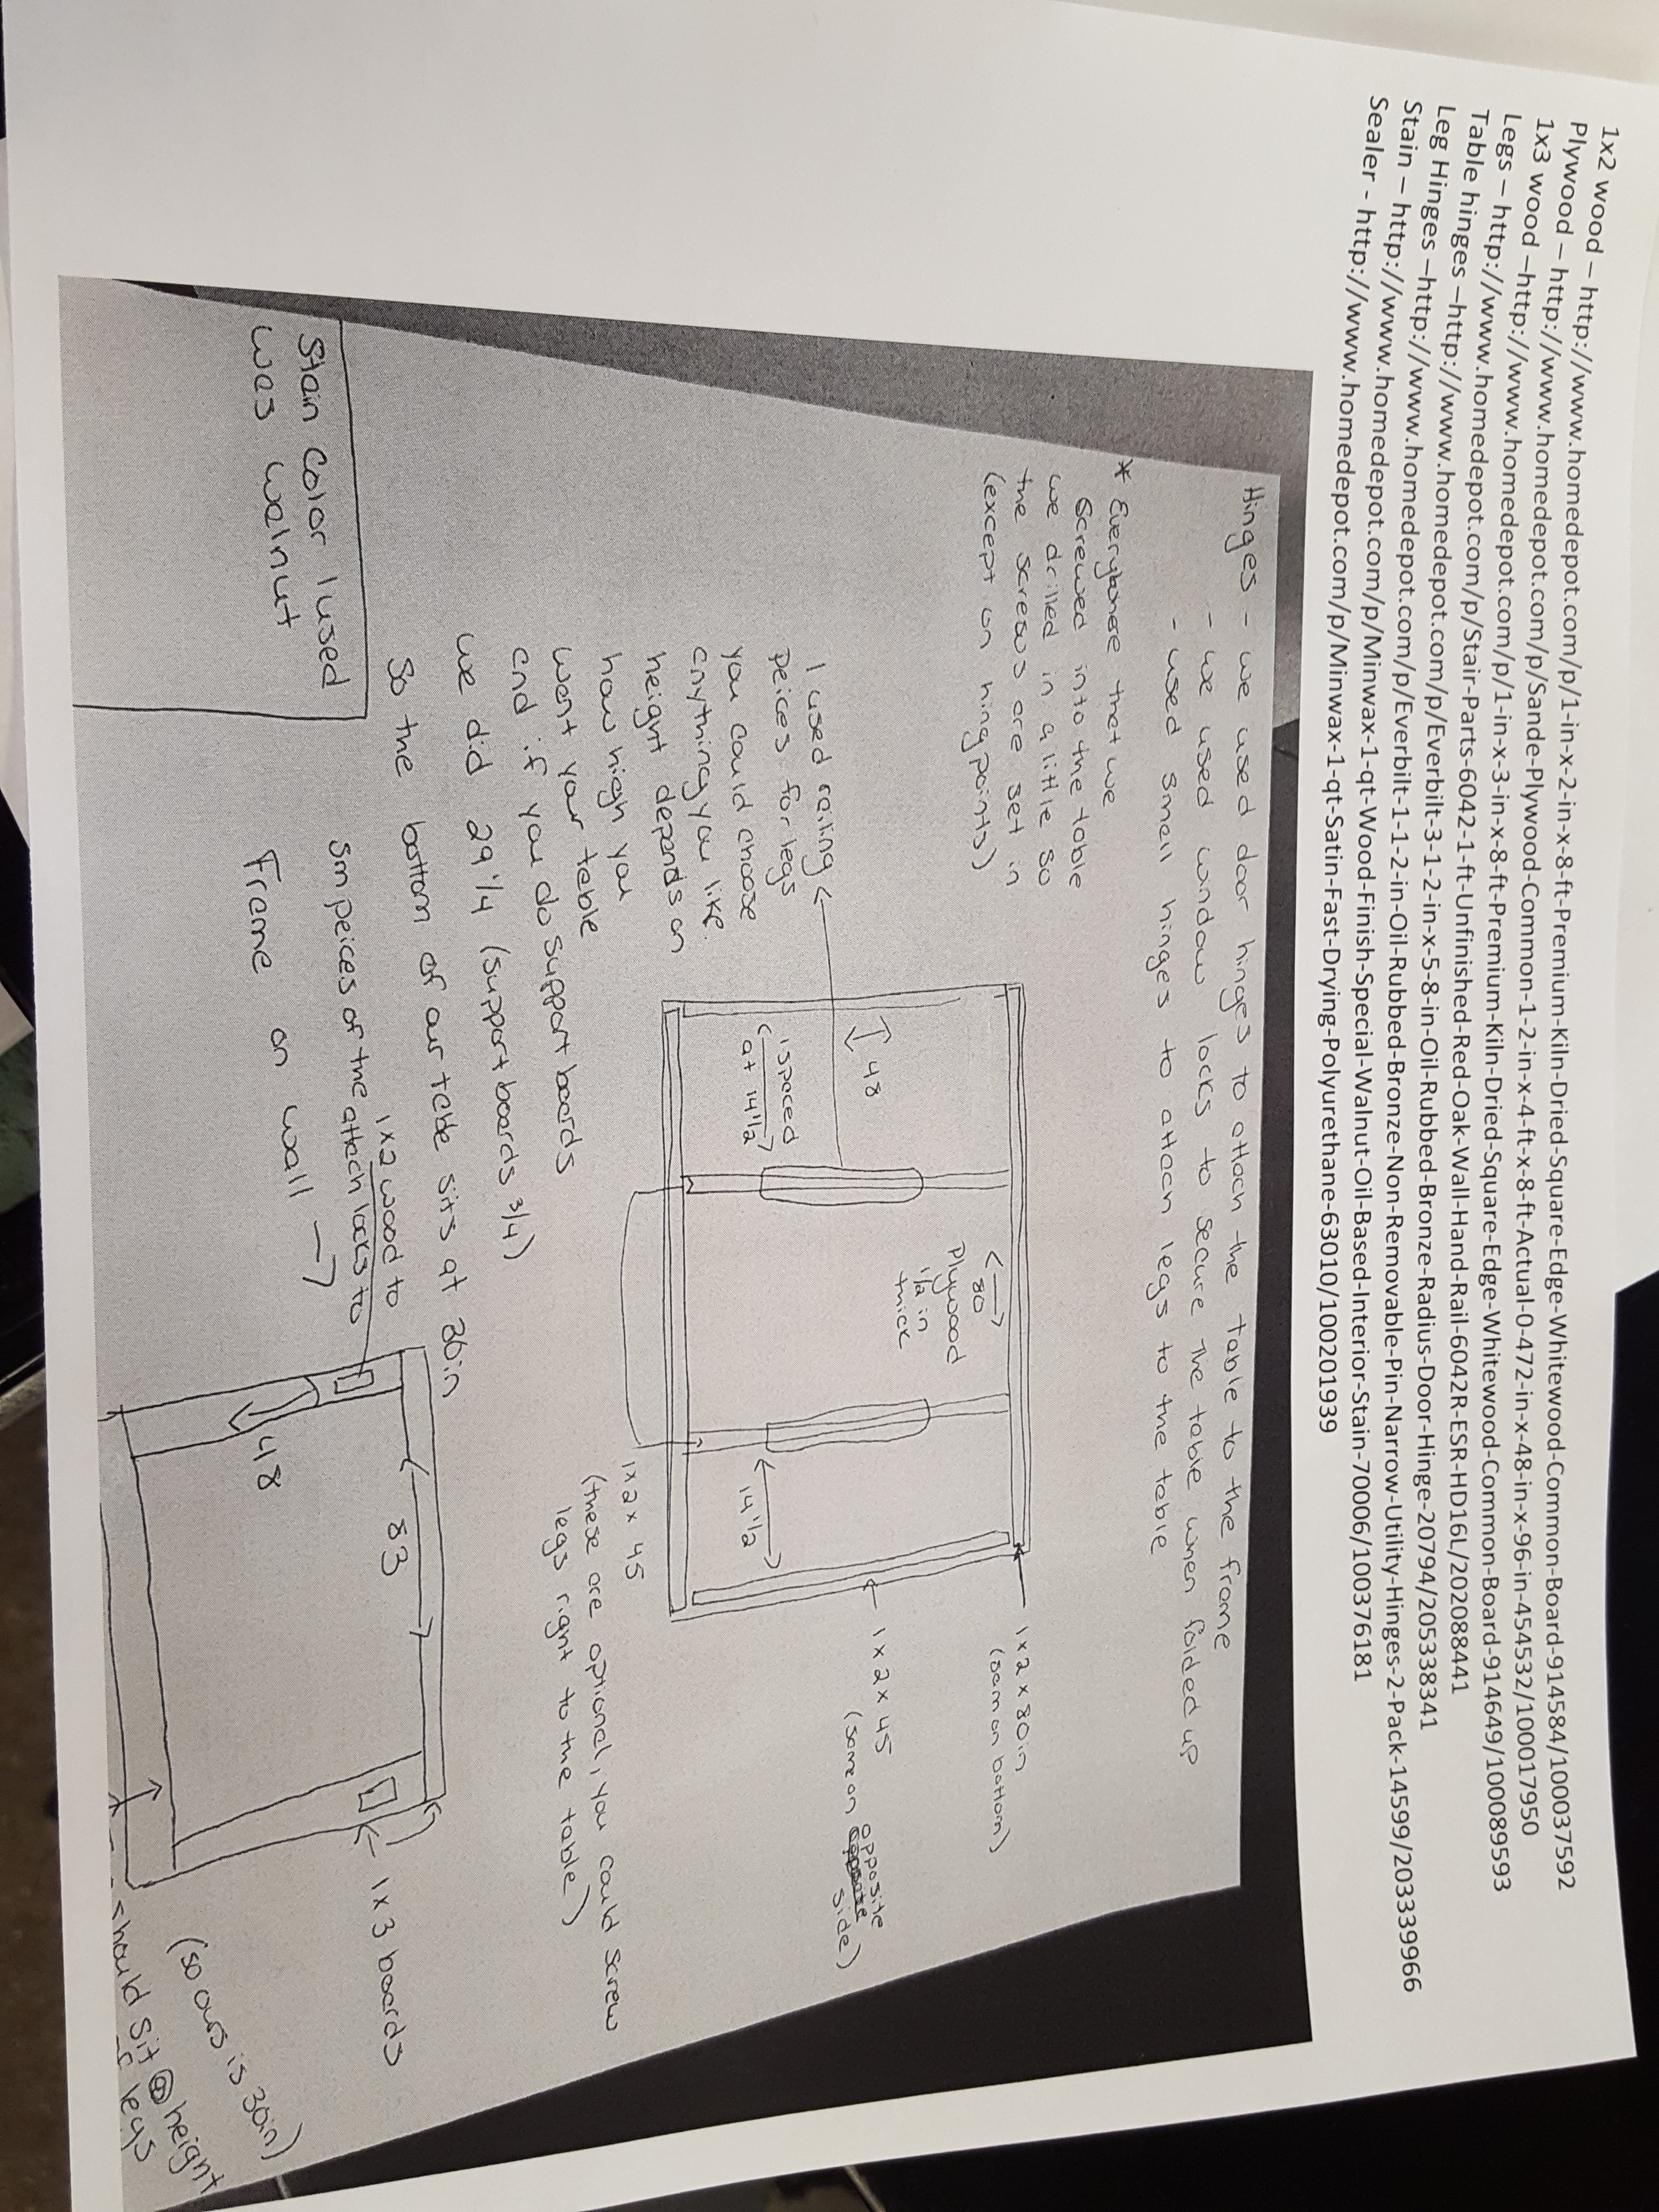 1x2 wood – http://www.homedepot.com/p/1-in-x-2-in-x-8-ft-Premium-Kiln-Dried-Square-Edge-Whitewood-Common-Board-914584/100037592
Plywood – http://www.homedepot.com/p/Sande-Plywood-Common-1-2-in-x-4-ft-x-8-ft-Actual-0-472-in-x-48-in-x-96-in-454532/100017950
1x3 wood –http://www.homedepot.com/p/1-in-x-3-in-x-8-ft-Premium-Kiln-Dried-Square-Edge-Whitewood-Common-Board-914649/100089593
Legs – http://www.homedepot.com/p/Stair-Parts-6042-1-ft-Unfinished-Red-Oak-Wall-Hand-Rail-6042R-ESR-HD16L/202088441
Table hinges –http://www.homedepot.com/p/Everbilt-3-1-2-in-x-5-8-in-Oil-Rubbed-Bronze-Radius-Door-Hinge-20794/205338341
Leg Hinges –http://www.homedepot.com/p/Everbilt-1-1-2-in-Oil-Rubbed-Bronze-Non-Removable-Pin-Narrow-Utility-Hinges-2-Pack-14599/203339966
Stain – http://www.homedepot.com/p/Minwax-1-qt-Wood-Finish-Special-Walnut-Oil-Based-Interior-Stain-70006/100376181
Sealer - http://www.homedepot.com/p/Minwax-1-qt-Satin-Fast-Drying-Polyurethane-63010/100201939
Hinges - we used door hinges to attach the table to the frame
- we used window locks to secure the table when folded up
- used small hinges to attach legs to the table
* Everywhere that we
screwed into the table
we drilled in a little so
the screws are set in
(except on hing points)
1x2x80in
(sam on bottom)
80
Plywood
1/2 in
thick
48
1x2x45
(same on opposite
side)
I used railing
peices for legs
you could choose
anything you like.
height depends on
how high you
want your table
and if you do support boards
we did 29 1/4 (support boards 3/4)
So the bottom of our table sits at 30in
i spaced
at 14 1/2
14 1/2
1x2x45
(these are optional, you could screw
legs right to the table)
83
1x3 boards
1x2 wood to
sm peices of the attach locks to
Frame on wall →
48
(so ours is 30in)
should sit @ height
legs
Stain color I used
was walnut